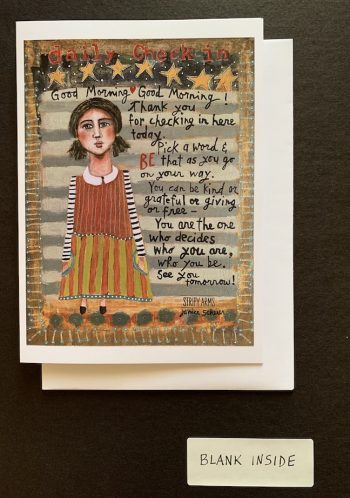 daily check in
Good Morning Good Morning!
Thank you
for checking in here
today.
Pick a word &
BE that as you go
on your way.
You can be kind or
grateful or giving
or free –
You are the one
who decides
who you are,
who you be.
See you
tomorrow!
STRIPY ARMS
BLANK INSIDE